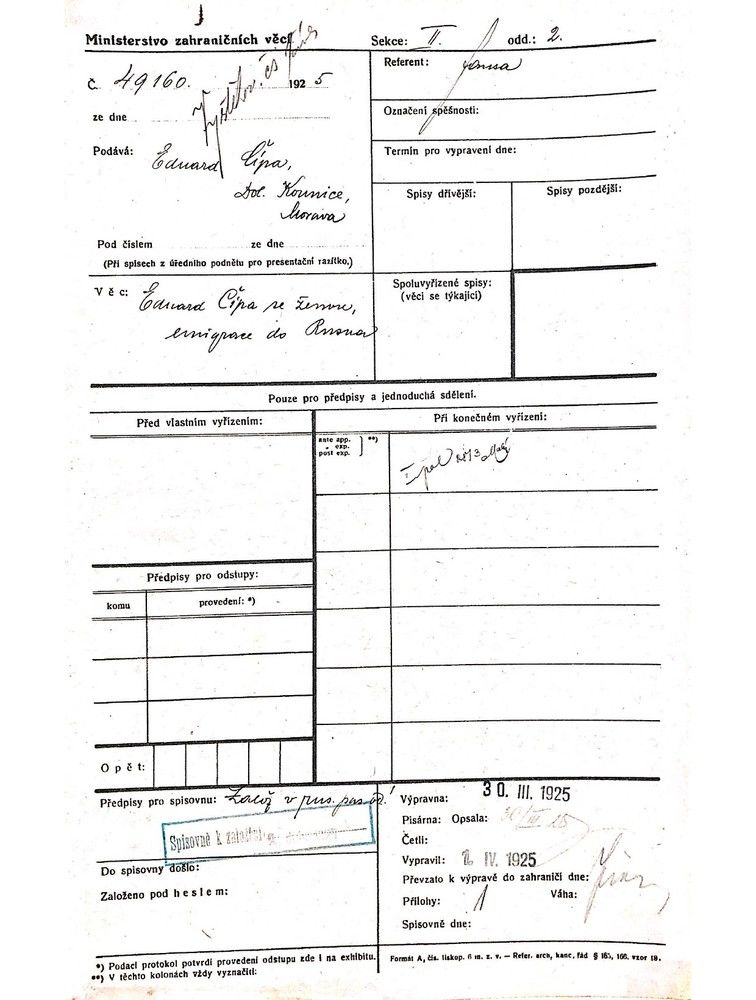 Ministerstvo zahraničních věcí
Sekce: II. odd.: 2.
Č. 49160. 1925
Referent:
ze dne
Označení spěšnosti:
Podává: Eduard Čípa,
Dol. Kounice,
Morava
Termín pro vypravení dne:
Spisy dřívější:
Spisy pozdější:
Pod číslem ze dne
(Při spisech z úředního podnětu pro presentační razítko.)
Věc: Eduard Čípa ze ženou,
emigrace do Ruska
Spoluvyřízené spisy:
(věci se týkající)
Pouze pro předpisy a jednoduchá sdělení.
Před vlastním vyřízením:
Při konečném vyřízení:
ante app.
„ exp.
post exp.
**)
Předpisy pro odstupy:
komu
provedení: *)
Opět:
Předpisy pro spisovnu: Založ v rus. pas.
Spisovně k založení
Do spisovny došlo:
Založeno pod heslem:
Výpravna: 30. III. 1925
Pisárna: Opsala: 30/III 25
Četli:
Vypravil: 1. IV. 1925
Převzato k výpravě do zahraničí dne:
Přílohy: 1 Váha:
Spisovně dne:
*) Podací protokol potvrdí provedení odstupu zde i na exhibitu.
**) V těchto kolonách vždy vyznačiti:
Formát A, čís. tiskop. 6 m. z. v. — Refer. arch, kanc, řád § 165, 166, vzor 19.